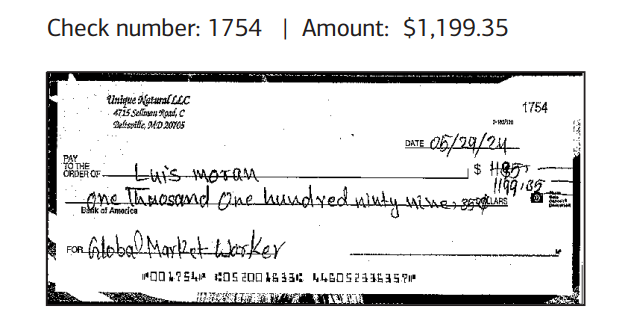 Check number: 1754 | Amount: $1,199.35
Unique Natural LLC
4715 Sellman Road, C
Beltsville, MD 20705
1754
DATE 05/29/24
PAY
TO THE
ORDER OF Luis moran
$ 1199.35
One Thousand One hundred ninty nine, 35 DOLLARS
Bank of America
FOR Global Market Worker
⑈001754⑈ ⑆052001633⑆ 446052336357⑈